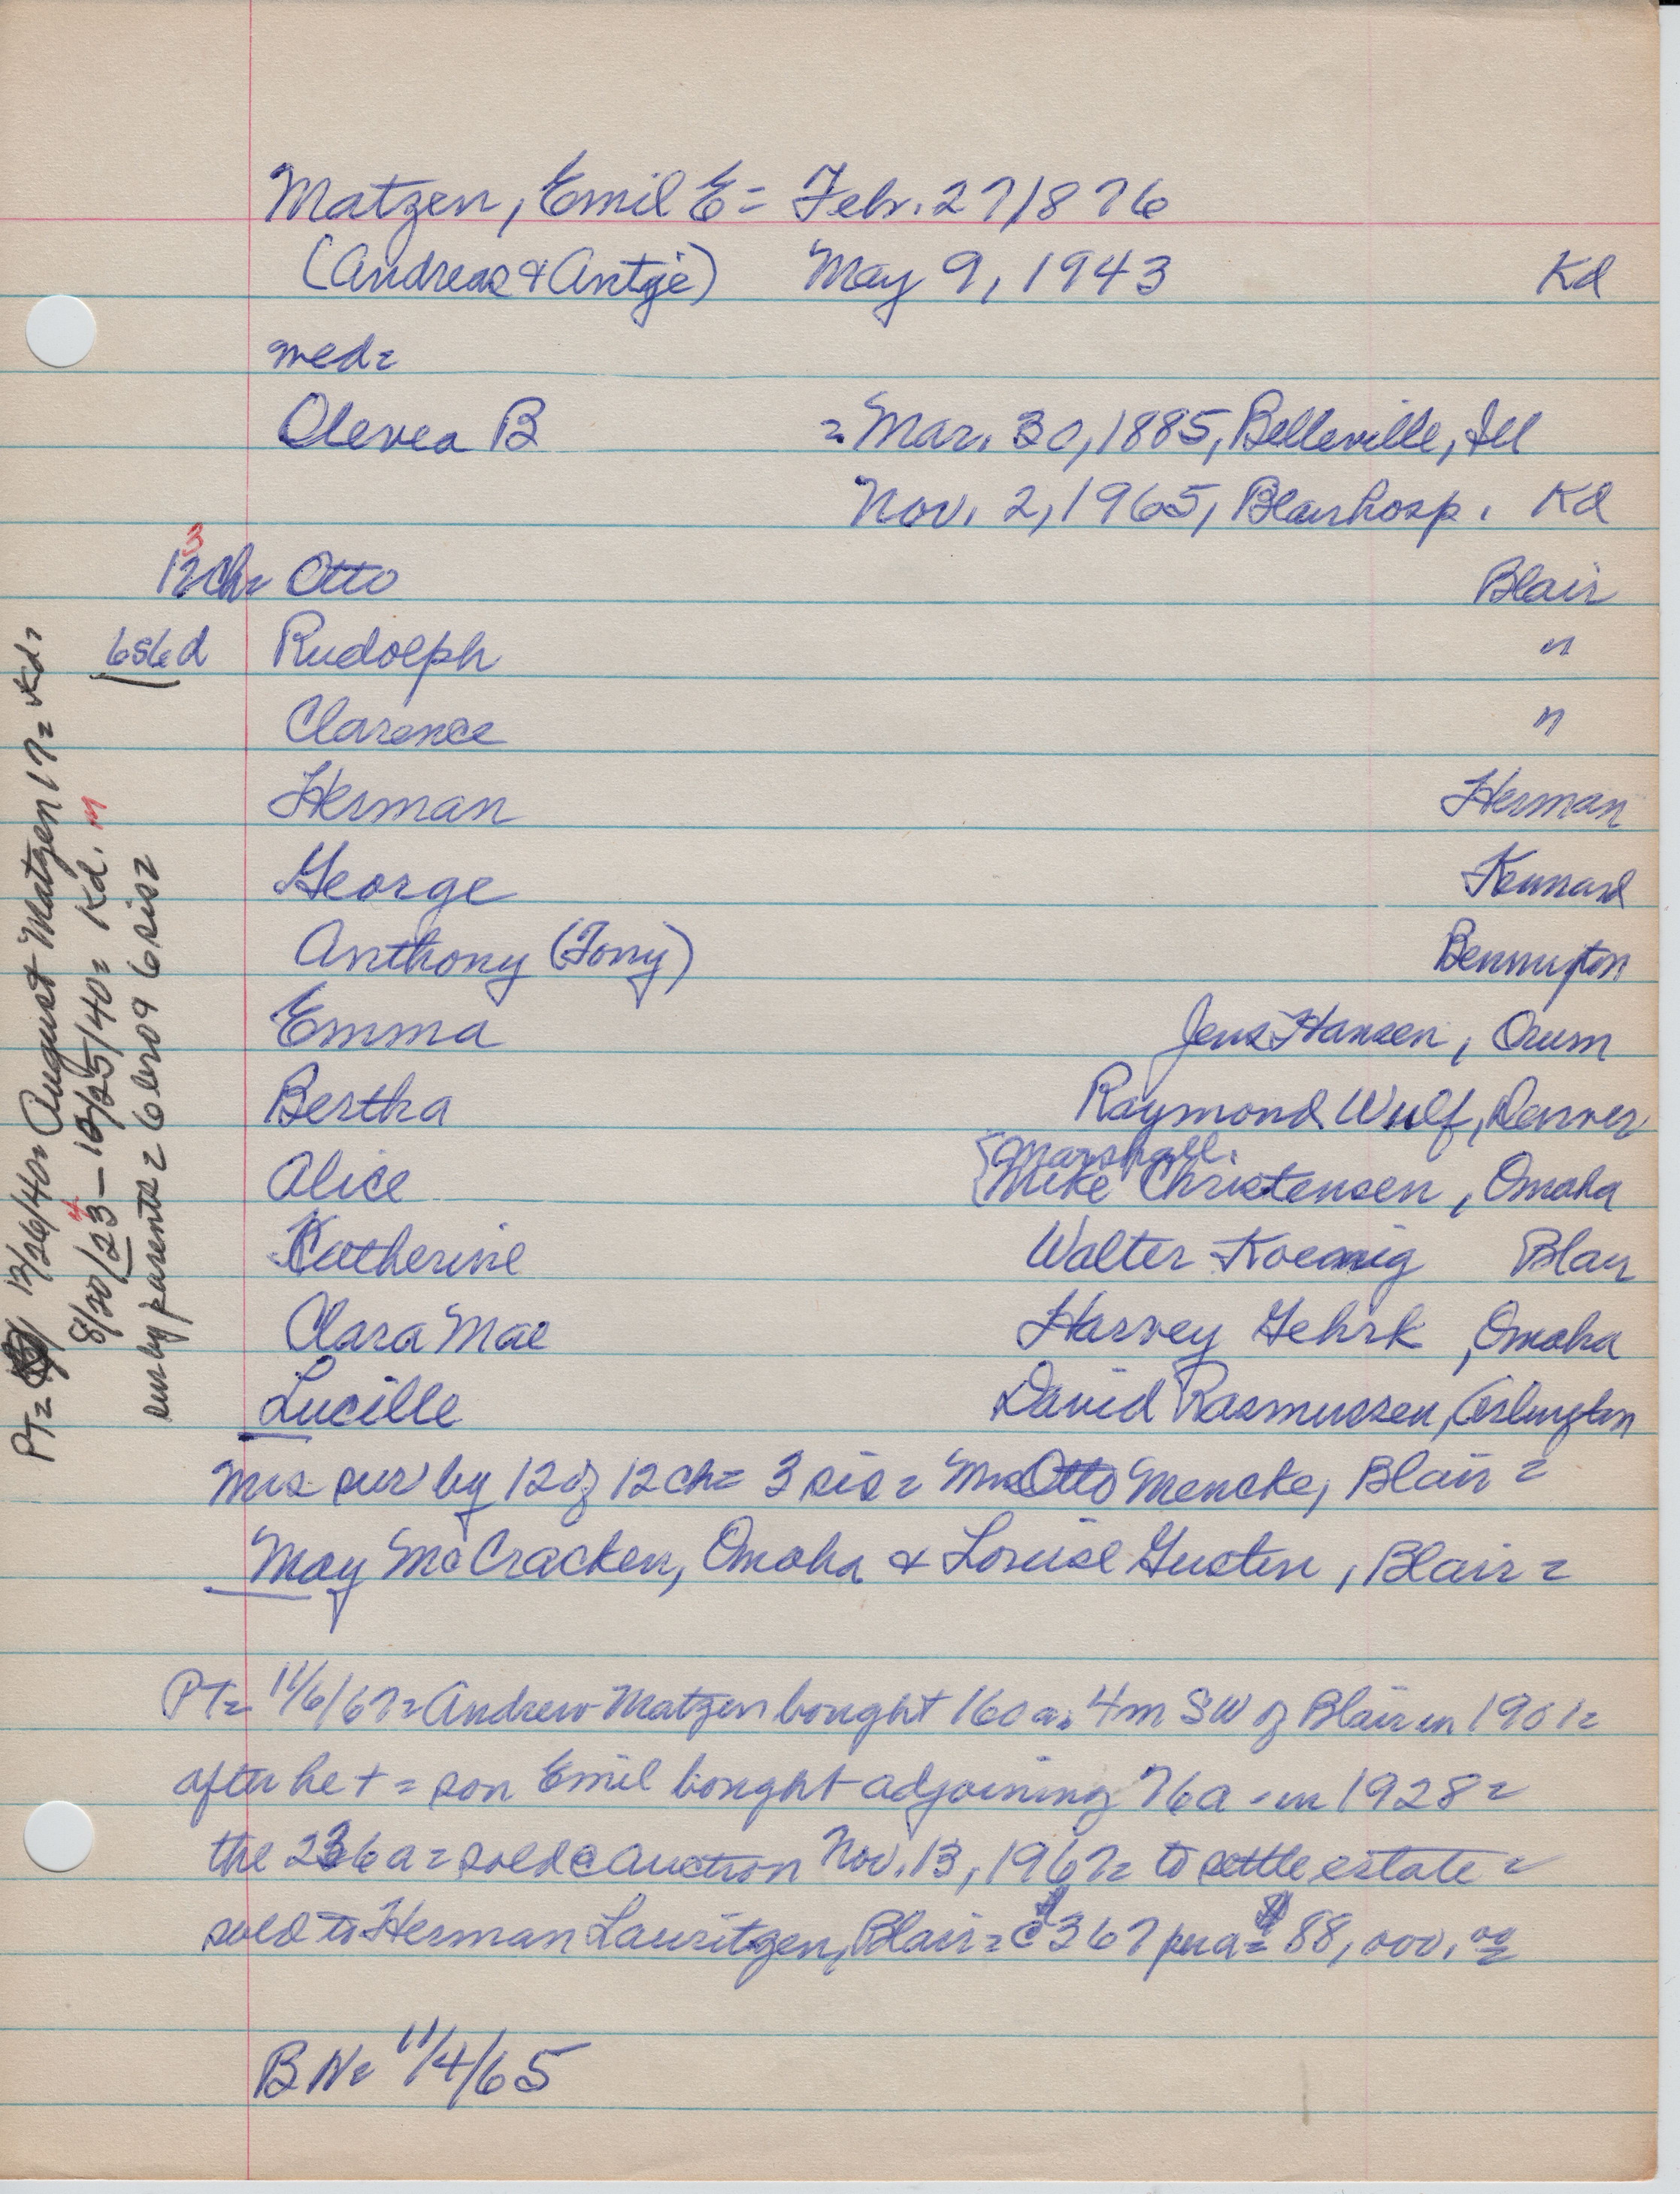 Matzen, Emil E = Febr. 27 1876
(Andreas & Antje) May 9, 1943 Kd
med=
Olevea B = Mar. 30, 1885, Belleville, Ill
Nov. 2, 1965, Blairhosp. Kd
3
12ch= Otto Blair
6s6d Rudolph "
Clarence "
Herman Herman
George Kennard
Anthony (Tony) Bennington
Emma Jens Hansen, Orum
Bertha Raymond Wulf, Denver
Marshall.
Alice Mike Christensen, Omaha
Katherine Walter Koennig Blair
Clara Mae Harvey Gehrk, Omaha
Lucille David Rasmussen, Arlington
Mrs sur by 12 of 12 ch= 3 sis= Mrs Otto Mencke, Blair=
May McCracken, Omaha & Louise Gusten, Blair=
PT= 11/6/67= Andrew Matzen bought 160 a. 4m SW of Blair in 1901=
after he + = son Emil bought adjoining 76a - in 1928=
the 236 a= sold @ auction Nov. 13, 1967= to settle estate=
sold to Herman Lauritzen, Blair= @ $367 per a= $88,000.00
BN= 11/4/65
PT= 12/26/40= August Matzen 17= Kd=
8/20/23 4 - 12/25/40= Kd. m
sur by parents= 6 bro 9 6 sis=